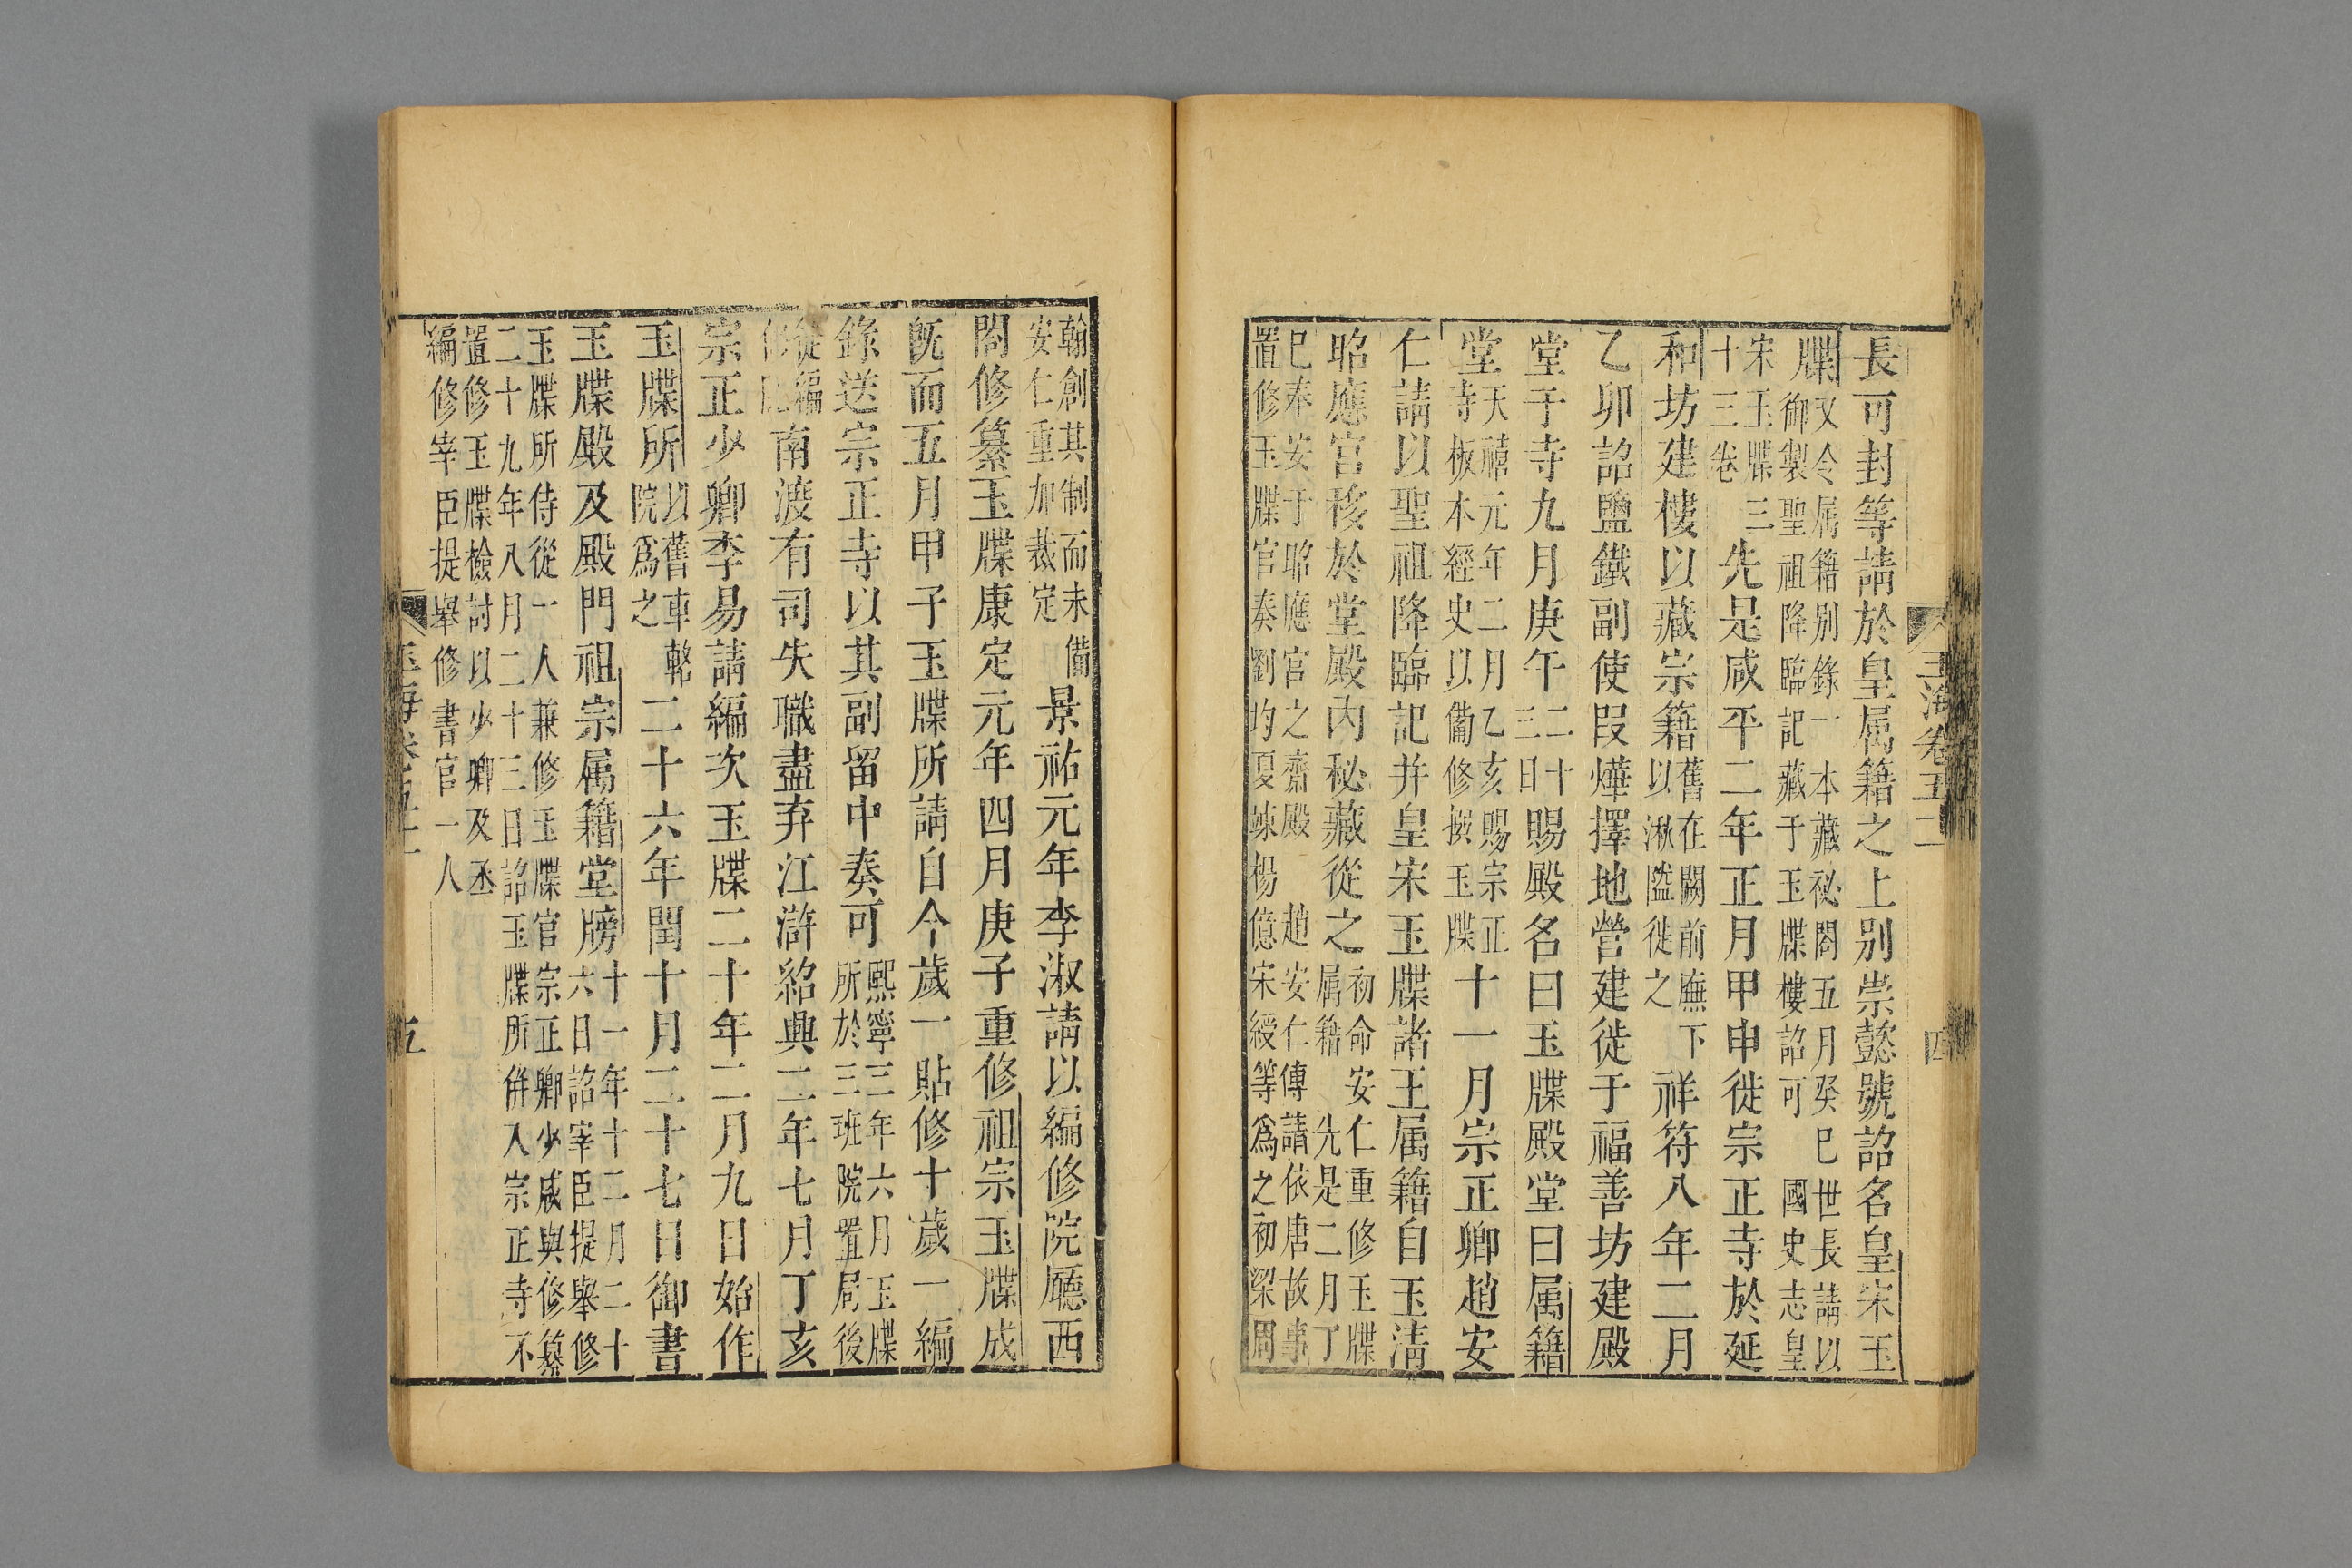 玉海卷五二 四
長可封等請於皇属籍之上别崇懿號詔名皇宋玉
牒又令属籍别錄一本藏祕閣五月癸巳世長請以
御製聖祖降臨記藏于玉牒樓詔可 國史志皇
宋玉牒三
十三卷先是咸平二年正月甲申徙宗正寺於延
和坊建樓以藏宗籍舊在闕前廡下
以湫隘徙之祥符八年二月
乙卯詔鹽鐵副使段燁擇地營建徙于福善坊建殿
堂于寺九月庚午二十
三日賜殿名曰玉牒殿堂曰属籍
堂天禧元年二月乙亥賜宗正
寺板本經史以備修撰玉牒十一月宗正卿趙安
仁請以聖祖降臨記并皇宋玉牒諸王属籍自玉淸
昭應宮移於堂殿内秘藏從之初命安仁重修玉牒
属籍 先是二月丁
巳奉安于昭應宮之齋殿 趙安仁傳請依唐故事
置修玉牒官奏劉均夏竦楊億宋綬等爲之初梁周
翰創其制而未備
安仁重加裁定景祐元年李淑請以編修院廳西
閤修纂玉牒康定元年四月庚子重修祖宗玉牒成
旣而五月甲子玉牒所請自今歲一貼修十歲一編
錄送宗正寺以其副留中奏可熙寧三年六月玉牒
所於三班院置局後
從編
南渡有司失職盡弃江滸紹興二年七月丁亥
宗正少卿李易請編次玉牒二十年二月九日始作
玉牒所以舊車輅
院爲之二十六年閏十月二十七日御書
玉牒殿及殿門祖宗属籍堂牓十一年十二月二十
六日詔宰臣提舉修
玉牒所侍從一人兼修玉牒官宗正卿少咸與修纂
二十九年八月二十三日詔玉牒所併入宗正寺不
置修玉牒檢討以少卿及丞
編修宰臣提舉修書官一人
五